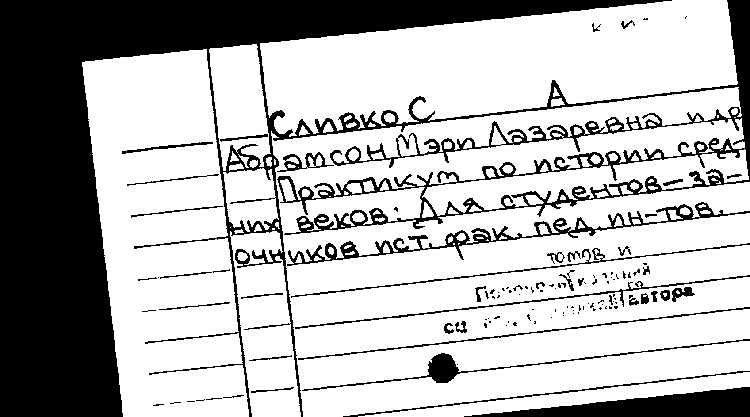 Сливко, С А
Абрамсон, Мэри Лазаревна и др
Практикум по истории сред-
них веков: Для студентов-за-
очников ист. фак. пед. ин-тов.
томов и
автора